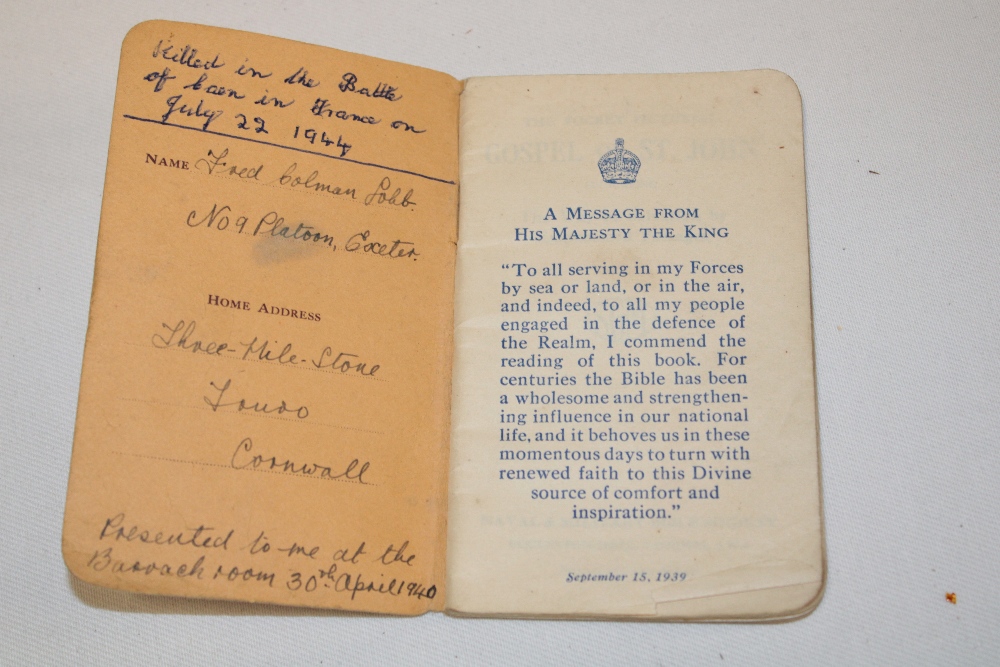 Killed in the Battle
of Caen in France on
July 22 1944
NAME Fred Colman Lobb.
No 9 Platoon, Exeter.
HOME ADDRESS
Three-Mile-Stone
Truro
Cornwall
Presented to me at the
Barrack room 30th April 1940
A MESSAGE FROM
HIS MAJESTY THE KING
"To all serving in my Forces
by sea or land, or in the air,
and indeed, to all my people
engaged in the defence of
the Realm, I commend the
reading of this book. For
centuries the Bible has been
a wholesome and strengthen-
ing influence in our national
life, and it behoves us in these
momentous days to turn with
renewed faith to this Divine
source of comfort and
inspiration."
September 15, 1939